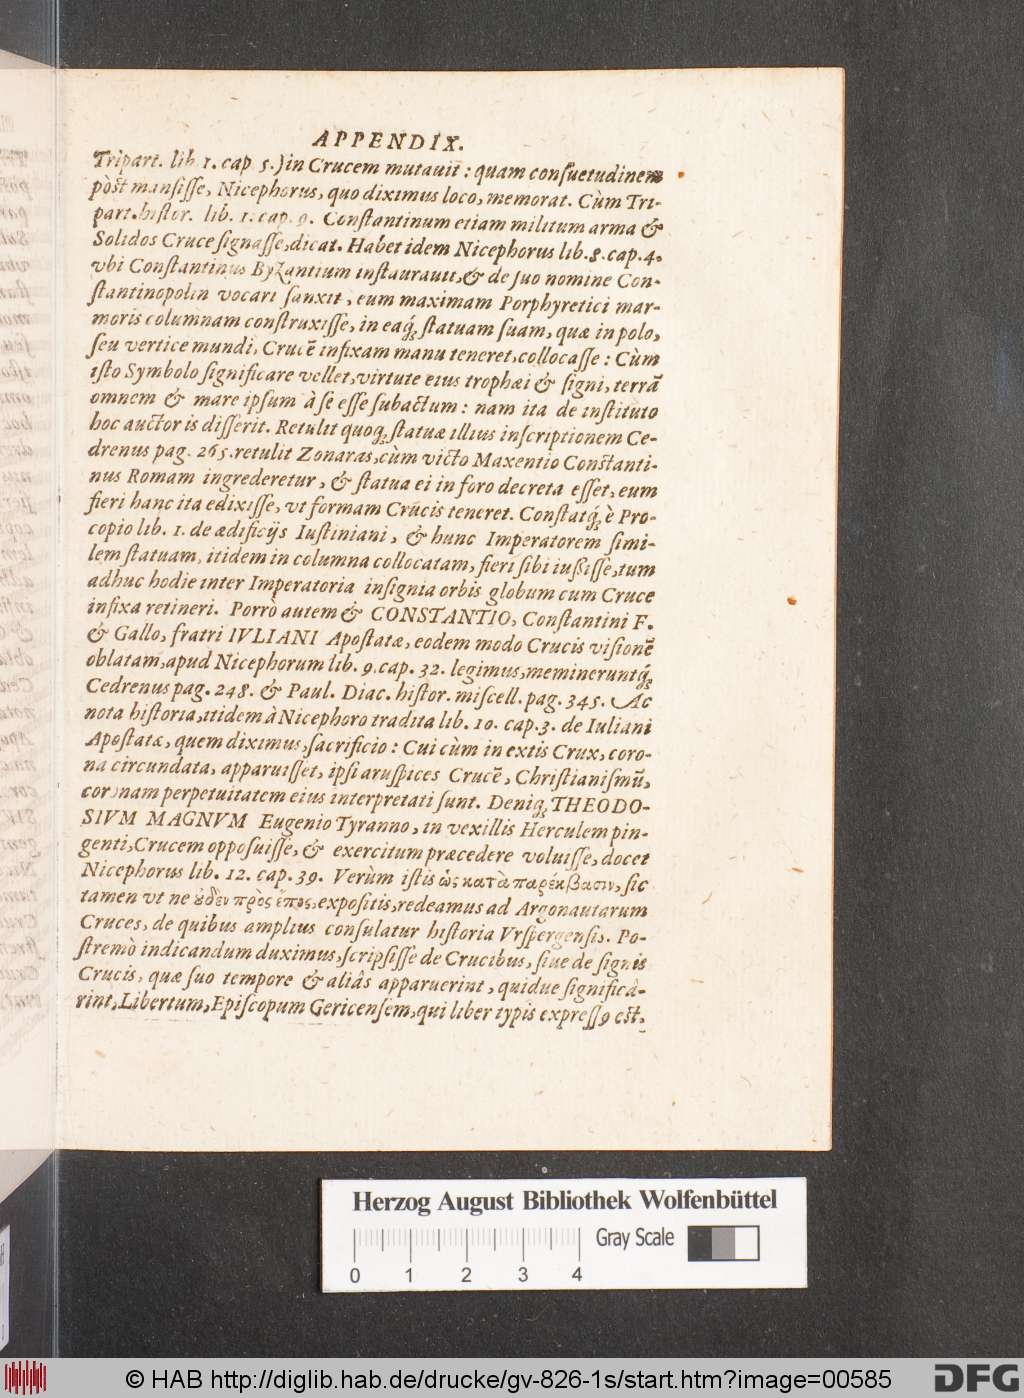 APPENDIX.
Tripart. lib 1. cap 5.) in Crucem mutauit : quam consuetudinem
pòst mansisse, Nicephorus, quo diximus loco, memorat. Cùm Tri-
part. histor. lib. 1. cap. 9. Constantinum etiam militum arma &
Solidos Cruce signasse, dicat. Habet idem Nicephorus lib. 8. cap. 4.
vbi Constantinus Byzantium instaurauit, & de suo nomine Con-
stantinopolin vocari sanxit, eum maximam Porphyretici mar-
moris columnam construxisse, in eaq́; statuam suam, quæ in polo,
seu vertice mundi, Crucē infixam manu teneret, collocasse : Cùm
isto Symbolo significare vellet, virtute eius trophæi & signi, terrā
omnem & mare ipsum à se esse subactum : nam ita de instituto
hoc auctor is disserit. Retulit quoq; statuæ illius inscriptionem Ce-
drenus pag. 265. retulit Zonaras, cùm victo Maxentio Constanti-
nus Romam ingrederetur, & statua ei in foro decreta esset, eum
fieri hanc ita edixisse, vt formam Crucis teneret. Constatq́; è Pro-
copio lib. 1. de ædificijs Iustiniani, & hunc Imperatorem simi-
lem statuam, itidem in columna collocatam, fieri sibi iußisse, tum
adhuc hodie inter Imperatoria insignia orbis globum cum Cruce
infixa retineri. Porrò autem & CONSTANTIO, Constantini F.
& Gallo, fratri IVLIANI Apostatæ, eodem modo Crucis visionē
oblatam, apud Nicephorum lib. 9. cap. 32. legimus, memineruntq́;
Cedrenus pag. 248. & Paul. Diac. histor. miscell. pag. 345. Ac
nota historia, itidem à Nicephoro tradita lib. 10. cap. 3. de Iuliani
Apostatæ, quem diximus, sacrificio : Cui cùm in extis Crux, coro-
na circundata, apparuisset, ipsi aruspices Crucē, Christianismū,
coronam perpetuitatem eius interpretati sunt. Deniq; THEODO-
SIVM MAGNVM Eugenio Tyranno, in vexillis Herculem pin-
genti, Crucem opposuisse, & exercitum præcedere voluisse, docet
Nicephorus lib. 12. cap. 39. Verùm istis ὡς κατὰ παρέκβασιν, sic
tamen vt ne ȣ̓δὲν πρὸς ἔπος, expositis, redeamus ad Argonautarum
Cruces, de quibus amplius consulatur historia Vrspergensis. Po-
stremò indicandum duximus, scripsisse de Crucibus, siue de signis
Crucis, quæ suo tempore & aliâs apparuerint, quidue significâ-
rint, Libertum, Episcopum Gericensem, qui liber typis expressꝰ est,
Herzog August Bibliothek Wolfenbüttel
Gray Scale
0 1 2 3 4
© HAB http://diglib.hab.de/drucke/gv-826-1s/start.htm?image=00585
DFG